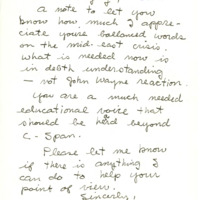 A note to let you
know how much I appre-
ciate your ballanced words
on the mid-east crisis.
What is needed now is
in debth understanding
- not John Wayne reaction.
You are a much needed
educational voice that
should be herd beyond
C-Span.
Please let me know
if there is anything I
can do to help your
point of view.
Sincerly,